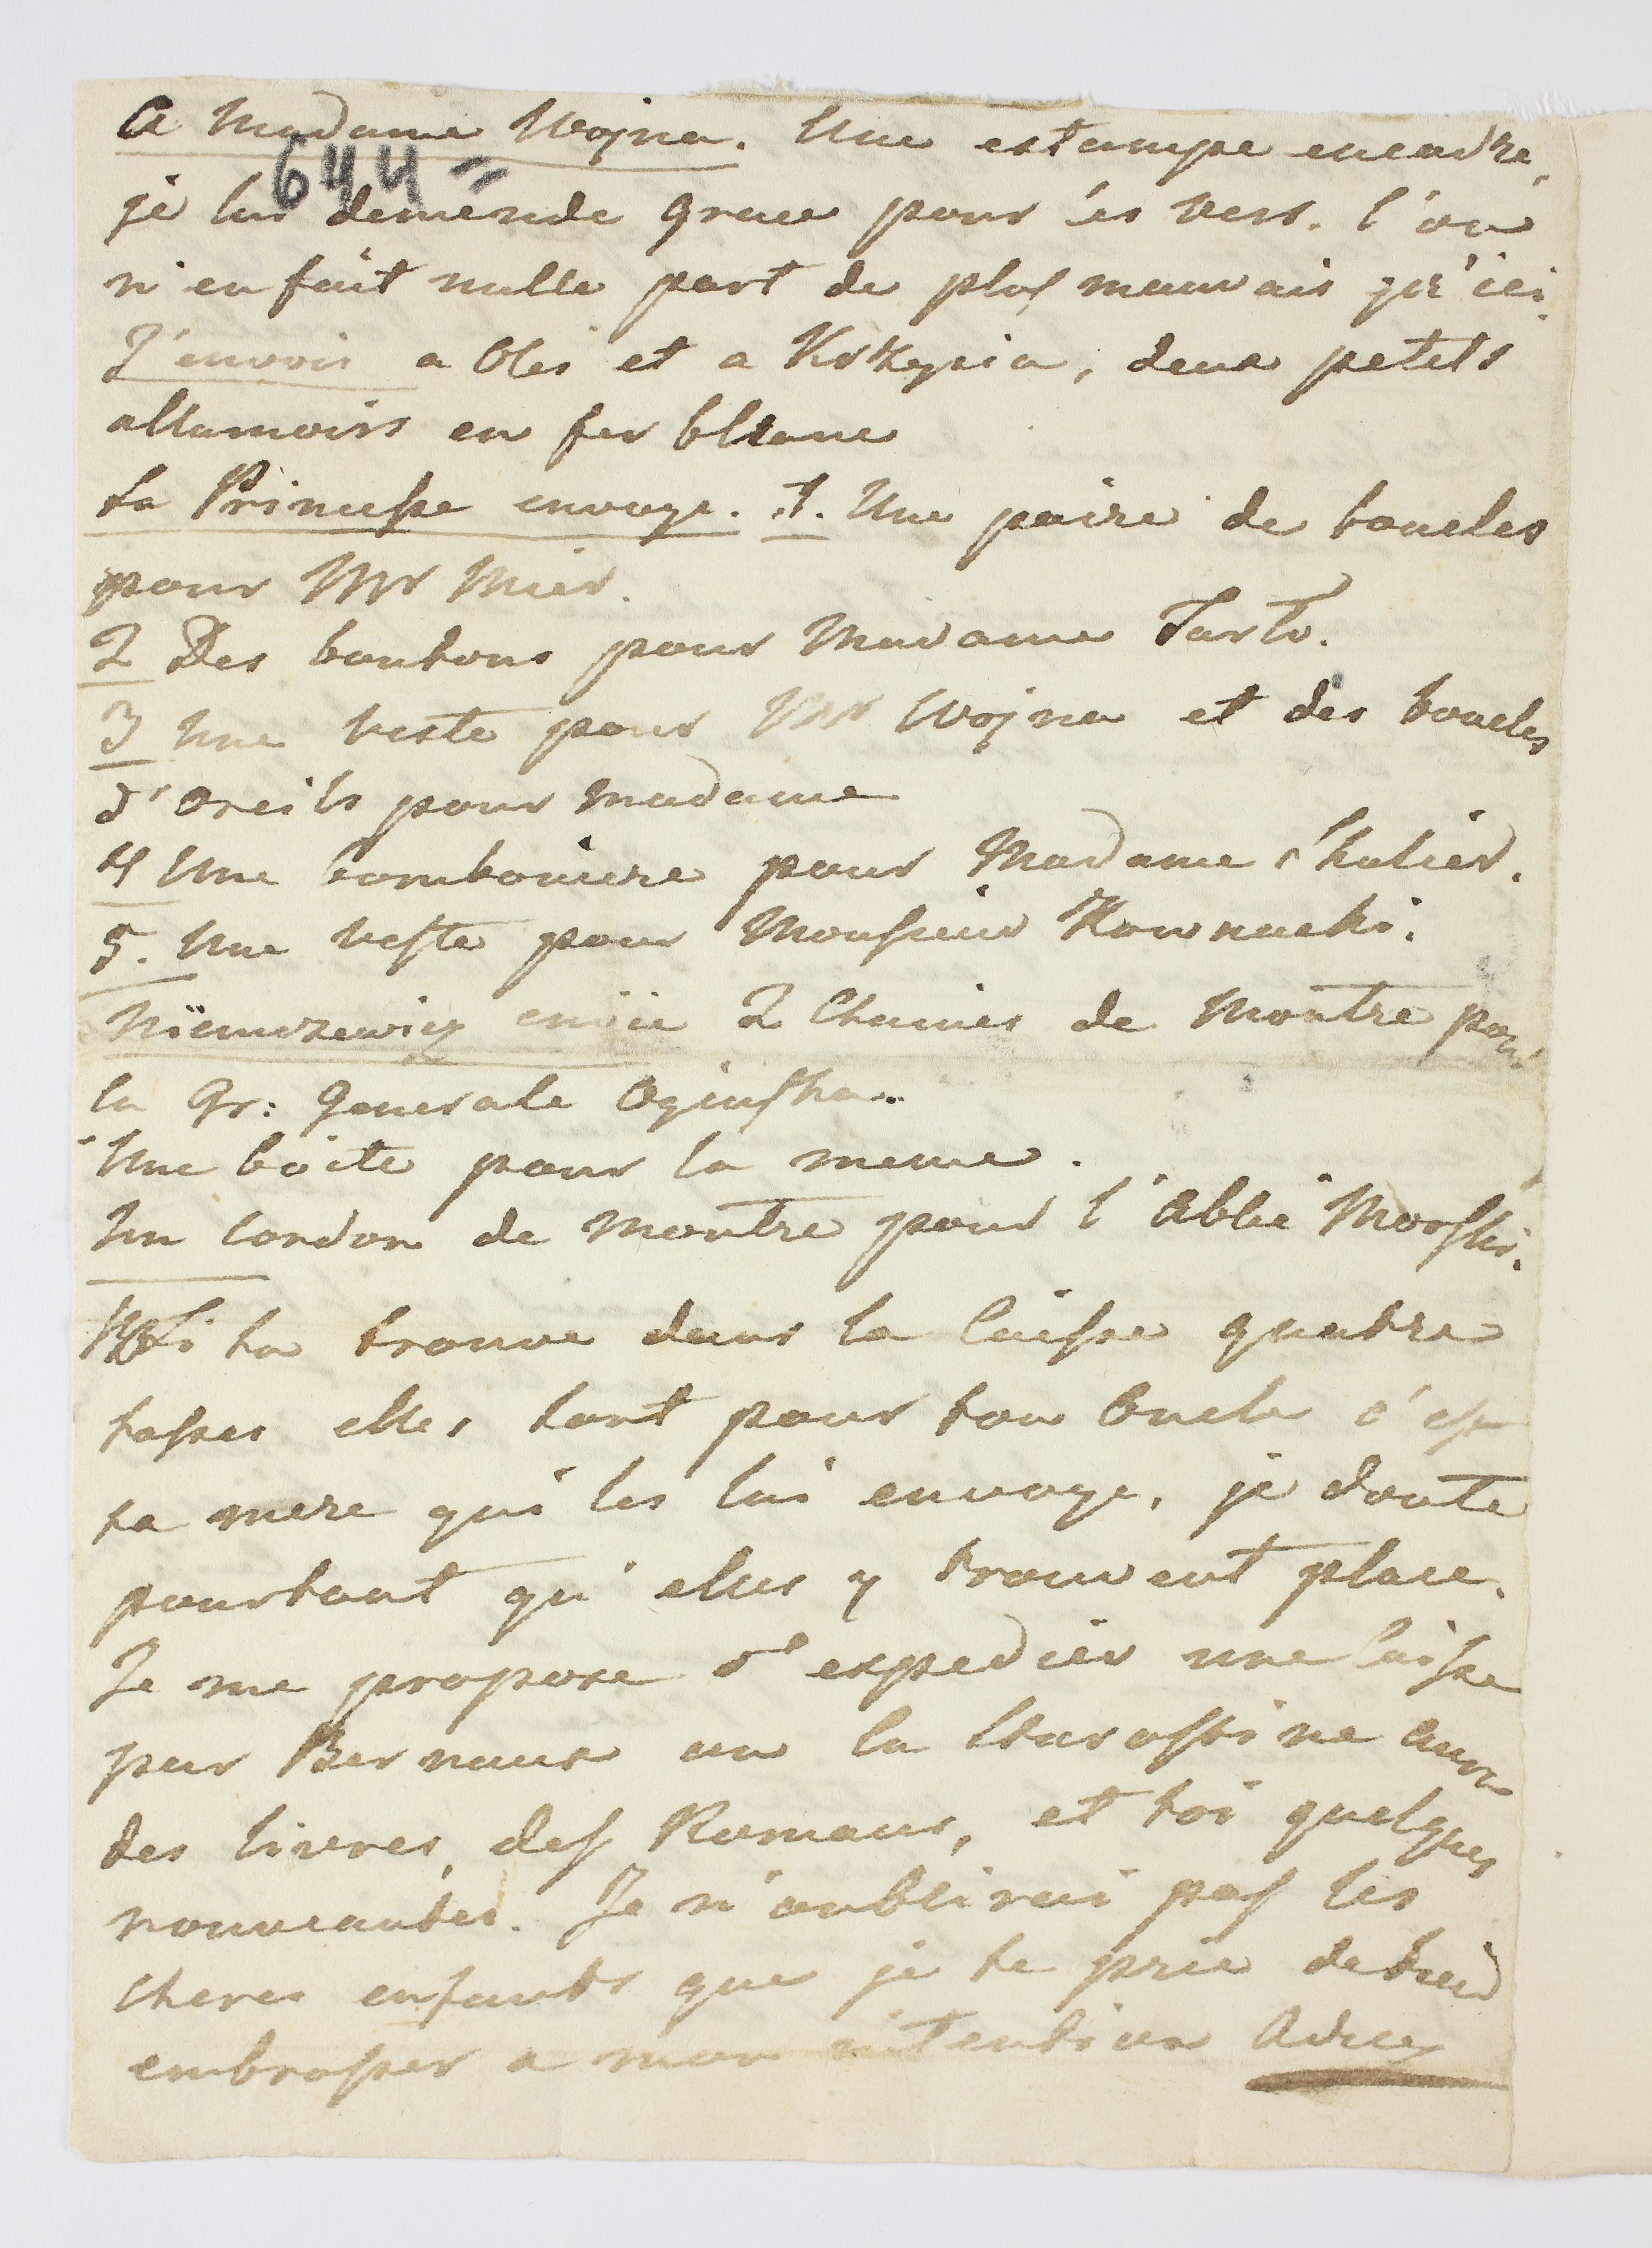 A Madame Wojna. Une estampe encadre,
644 =
je lui demende grace pour les vers. l'on
n'en fait nulle part de plus mauvais qu'ici.
J'envois a Olés et a Krzysia, deux petits
allumoirs en fer blanc
La Princesse envoye. 1. Une paire de boucles
pour Mr Mier.
2 Des boutons pour Madame
3 Une veste pour Mr Wojna et des boucles
d'oreils pour Madame
4 Une bomboniere pour Madame
5. Une veste pour Monsieur Kownacki.
Niemcewicz 2 Chaines de Montre pour
la Gr: Generale Oginska..
Une boite pour la meme.
Un Cordon de Montre pour l'Abbé Morski.
Si ta trouve dans la Caisse quatre
tasses elles sont pour ton Oncle c'est
ta mere qui les lui envoye, je doute
pourtant qu'elles y trouvent place.
Je me propose d'expedier une Caisse
par Bernaux la Starostine aura
des livres, des Romans, et toi quelques
nouveautes. Je n'oublirai pas les
cheres enfants que je te prie de bien
embrasser a mon intention Adieu